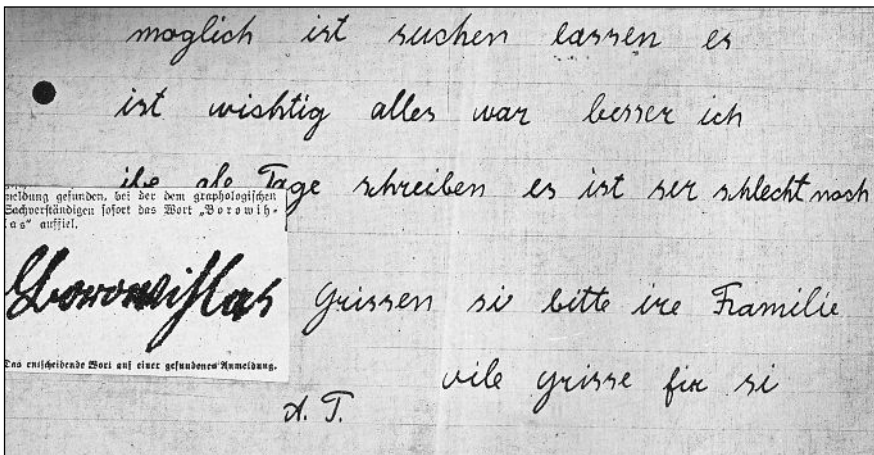 moglich ist suchen lassen es
ist wichtig alles war besser ich
ibe ale Tage schreiben es ist ser schlecht noch
meldung gefunden, bei der dem graphologischen
Sachverständigen sofort das Wort „Borowih-
las“ auffiel.
Borowihlas
Das entscheidende Wort auf einer gefundenen Anmeldung.
Grissen si bitte ire Familie
vile grisse fir si
A. T.